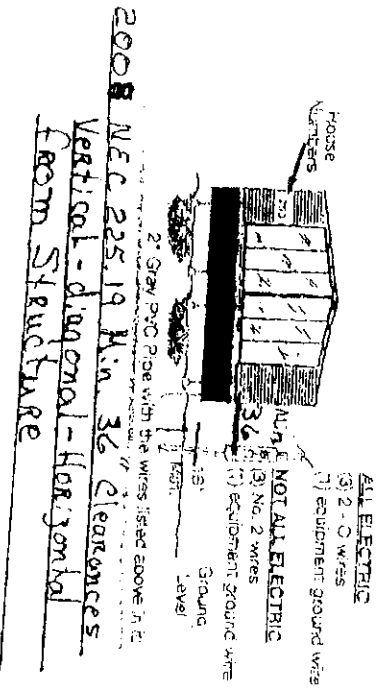 ALL ELECTRIC
(3) 2 - O wires
(1) equipment ground wire
House
Numbers
Min 36
NOT ALL ELECTRIC
(3) No. 2 wires
(1) equipment ground wire
18"
Min.
Ground
Level
2" Gray PVC Pipe with the wires listed above in it
2008 NEC 225.19 Min 36 Clearances
Vertical - diagonal - Horizontal
From Structure